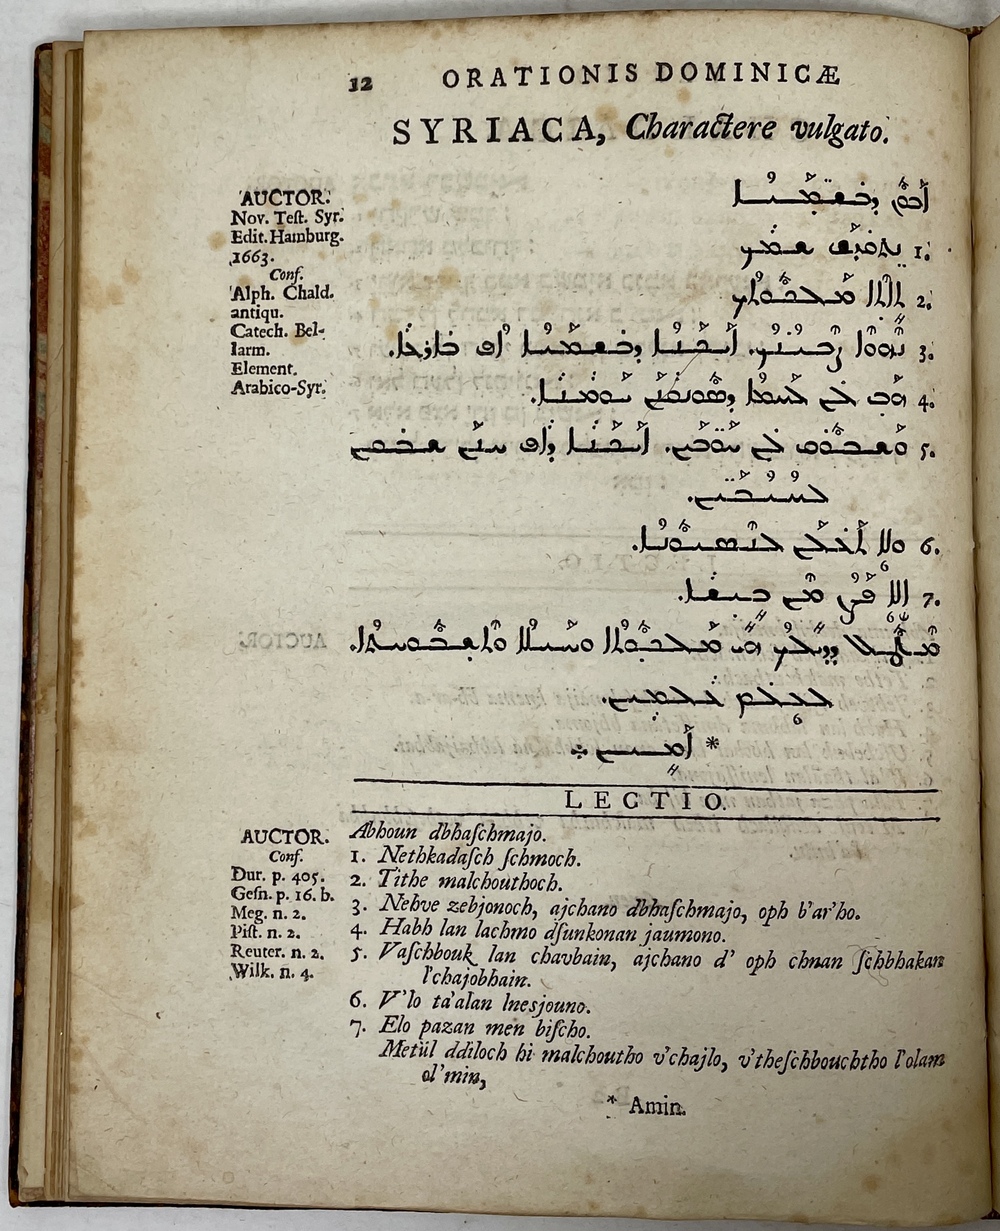 12 ORATIONIS DOMINICÆ
SYRIACA, Charactere vulgato.
AUCTOR.
Nov. Teſt. Syr.
Edit. Hamburg.
1663.
Conf.
Alph. Chald.
antiqu.
Catech. Bel-
larm.
Element.
Arabico-Syr.
ܐܒܘܢ ܕܒܫܡܝܐ
1. ܢܬܩܕܫ ܫܡܟ
2. ܬܐܬܐ ܡܠܟܘܬܟ
3. ܢܗܘܐ ܨܒܝܢܟ. ܐܝܟܢܐ ܕܒܫܡܝܐ ܐܦ ܒܐܪܥܐ.
4. ܗܒ ܠܢ ܠܚܡܐ ܕܣܘܢܩܢܢ ܝܘܡܢܐ.
5. ܘܫܒܘܩ ܠܢ ܚܘܒܝܢ. ܐܝܟܢܐ ܕܐܦ ܚܢܢ ܫܒܩܢ
ܠܚܝܒܝܢ.
6. ܘܠܐ ܬܥܠܢ ܠܢܣܝܘܢܐ.
7. ܐܠܐ ܦܨܢ ܡܢ ܒܝܫܐ.
ܡܛܠ ܕܕܝܠܟ ܗܝ ܡܠܟܘܬܐ ܘܚܝܠܐ ܘܬܫܒܘܚܬܐ.
ܠܥܠܡ ܥܠܡܝܢ.
* ܐܡܝܢ
LECTIO.
AUCTOR.
Conf.
Dur. p. 405.
Geſn. p. 16. b.
Meg. n. 2.
Piſt. n. 2.
Reuter. n. 2.
Wilk. n. 4.
Abhoun dbhaſchmajo.
1. Nethkadaſch ſchmoch.
2. Tithe malchouthoch.
3. Nehve zebjonoch, ajchano dbhaſchmajo, oph b'ar'ho.
4. Habh lan lachmo dſunkonan jaumono.
5. Vaſchbouk lan chavbain, ajchano d' oph chnan ſchbhakan
l'chajobhain.
6. V'lo ta'alan lnesjouno.
7. Elo pazan men biſcho.
Metül ddiloch hi malchoutho v'chajlo, v'theſchbouchtho l'olam
ol'min,
* Amin.